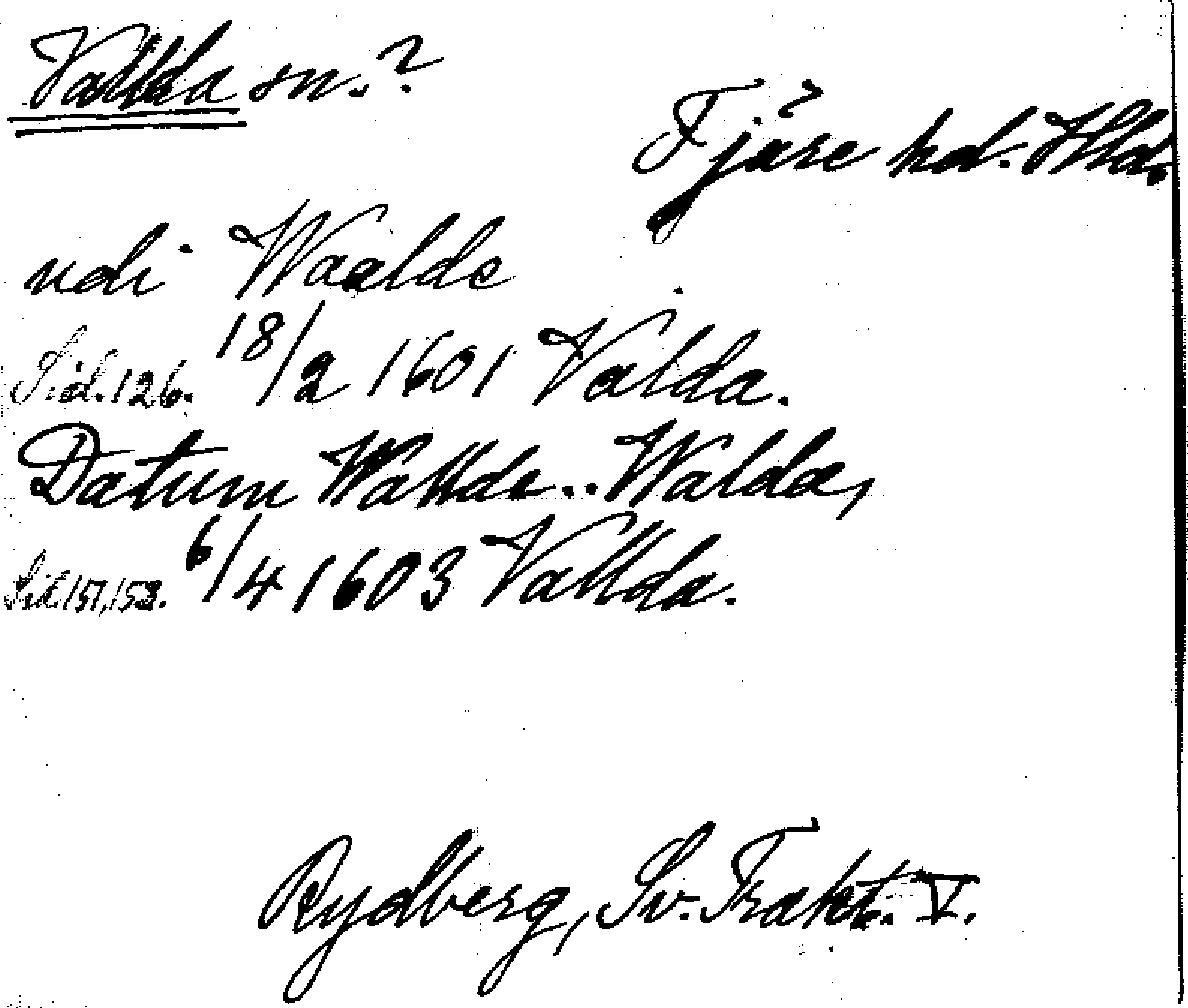 Vallda sn.?
Fjäre hd. Hld.
udi Waalde
Sid. 126. 18/2 1601 Valda.
Datum Wallde.. Walda,
Sid. 151, 152. 6/4 1603 Vallda.
Rydberg, Sv. Trakt. V.